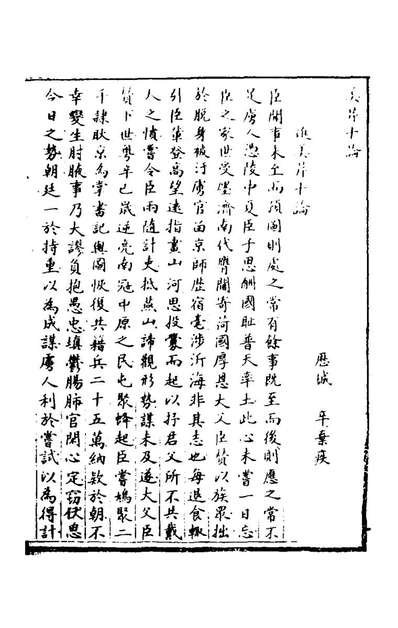 美芹十論
歷城 辛棄疾
進美芹十論
臣聞事未至而預圖則處之常有餘事既至而後則應之常不
足虜人憑陵中夏臣子思酬國耻普天率土此心未嘗一日忘
臣之家世受廛濟南代膺閫寄荷國厚恩大父臣贊以族眾拙
於脫身被汙虜官留京師歷宿亳涉沂海非其志也每退食輒
引臣輩登高望遠指畫山河思投釁而起以抒君父所不共戴
人之憤嘗令臣兩隨計吏抵燕山諦觀形勢謀未及遂大父臣
贊下世粵辛巳歲逆亮南冦中原之民屯聚蜂起臣嘗鳩聚二
千隸耿京為掌書記與圖恢復共籍兵二十五萬納欵於朝不
幸變生肘腋事乃大謬負抱愚忠填鬱腸肺官閑心定竊伏思
今日之勢朝廷一於持重以為成謀虜人利於嘗試以為得計